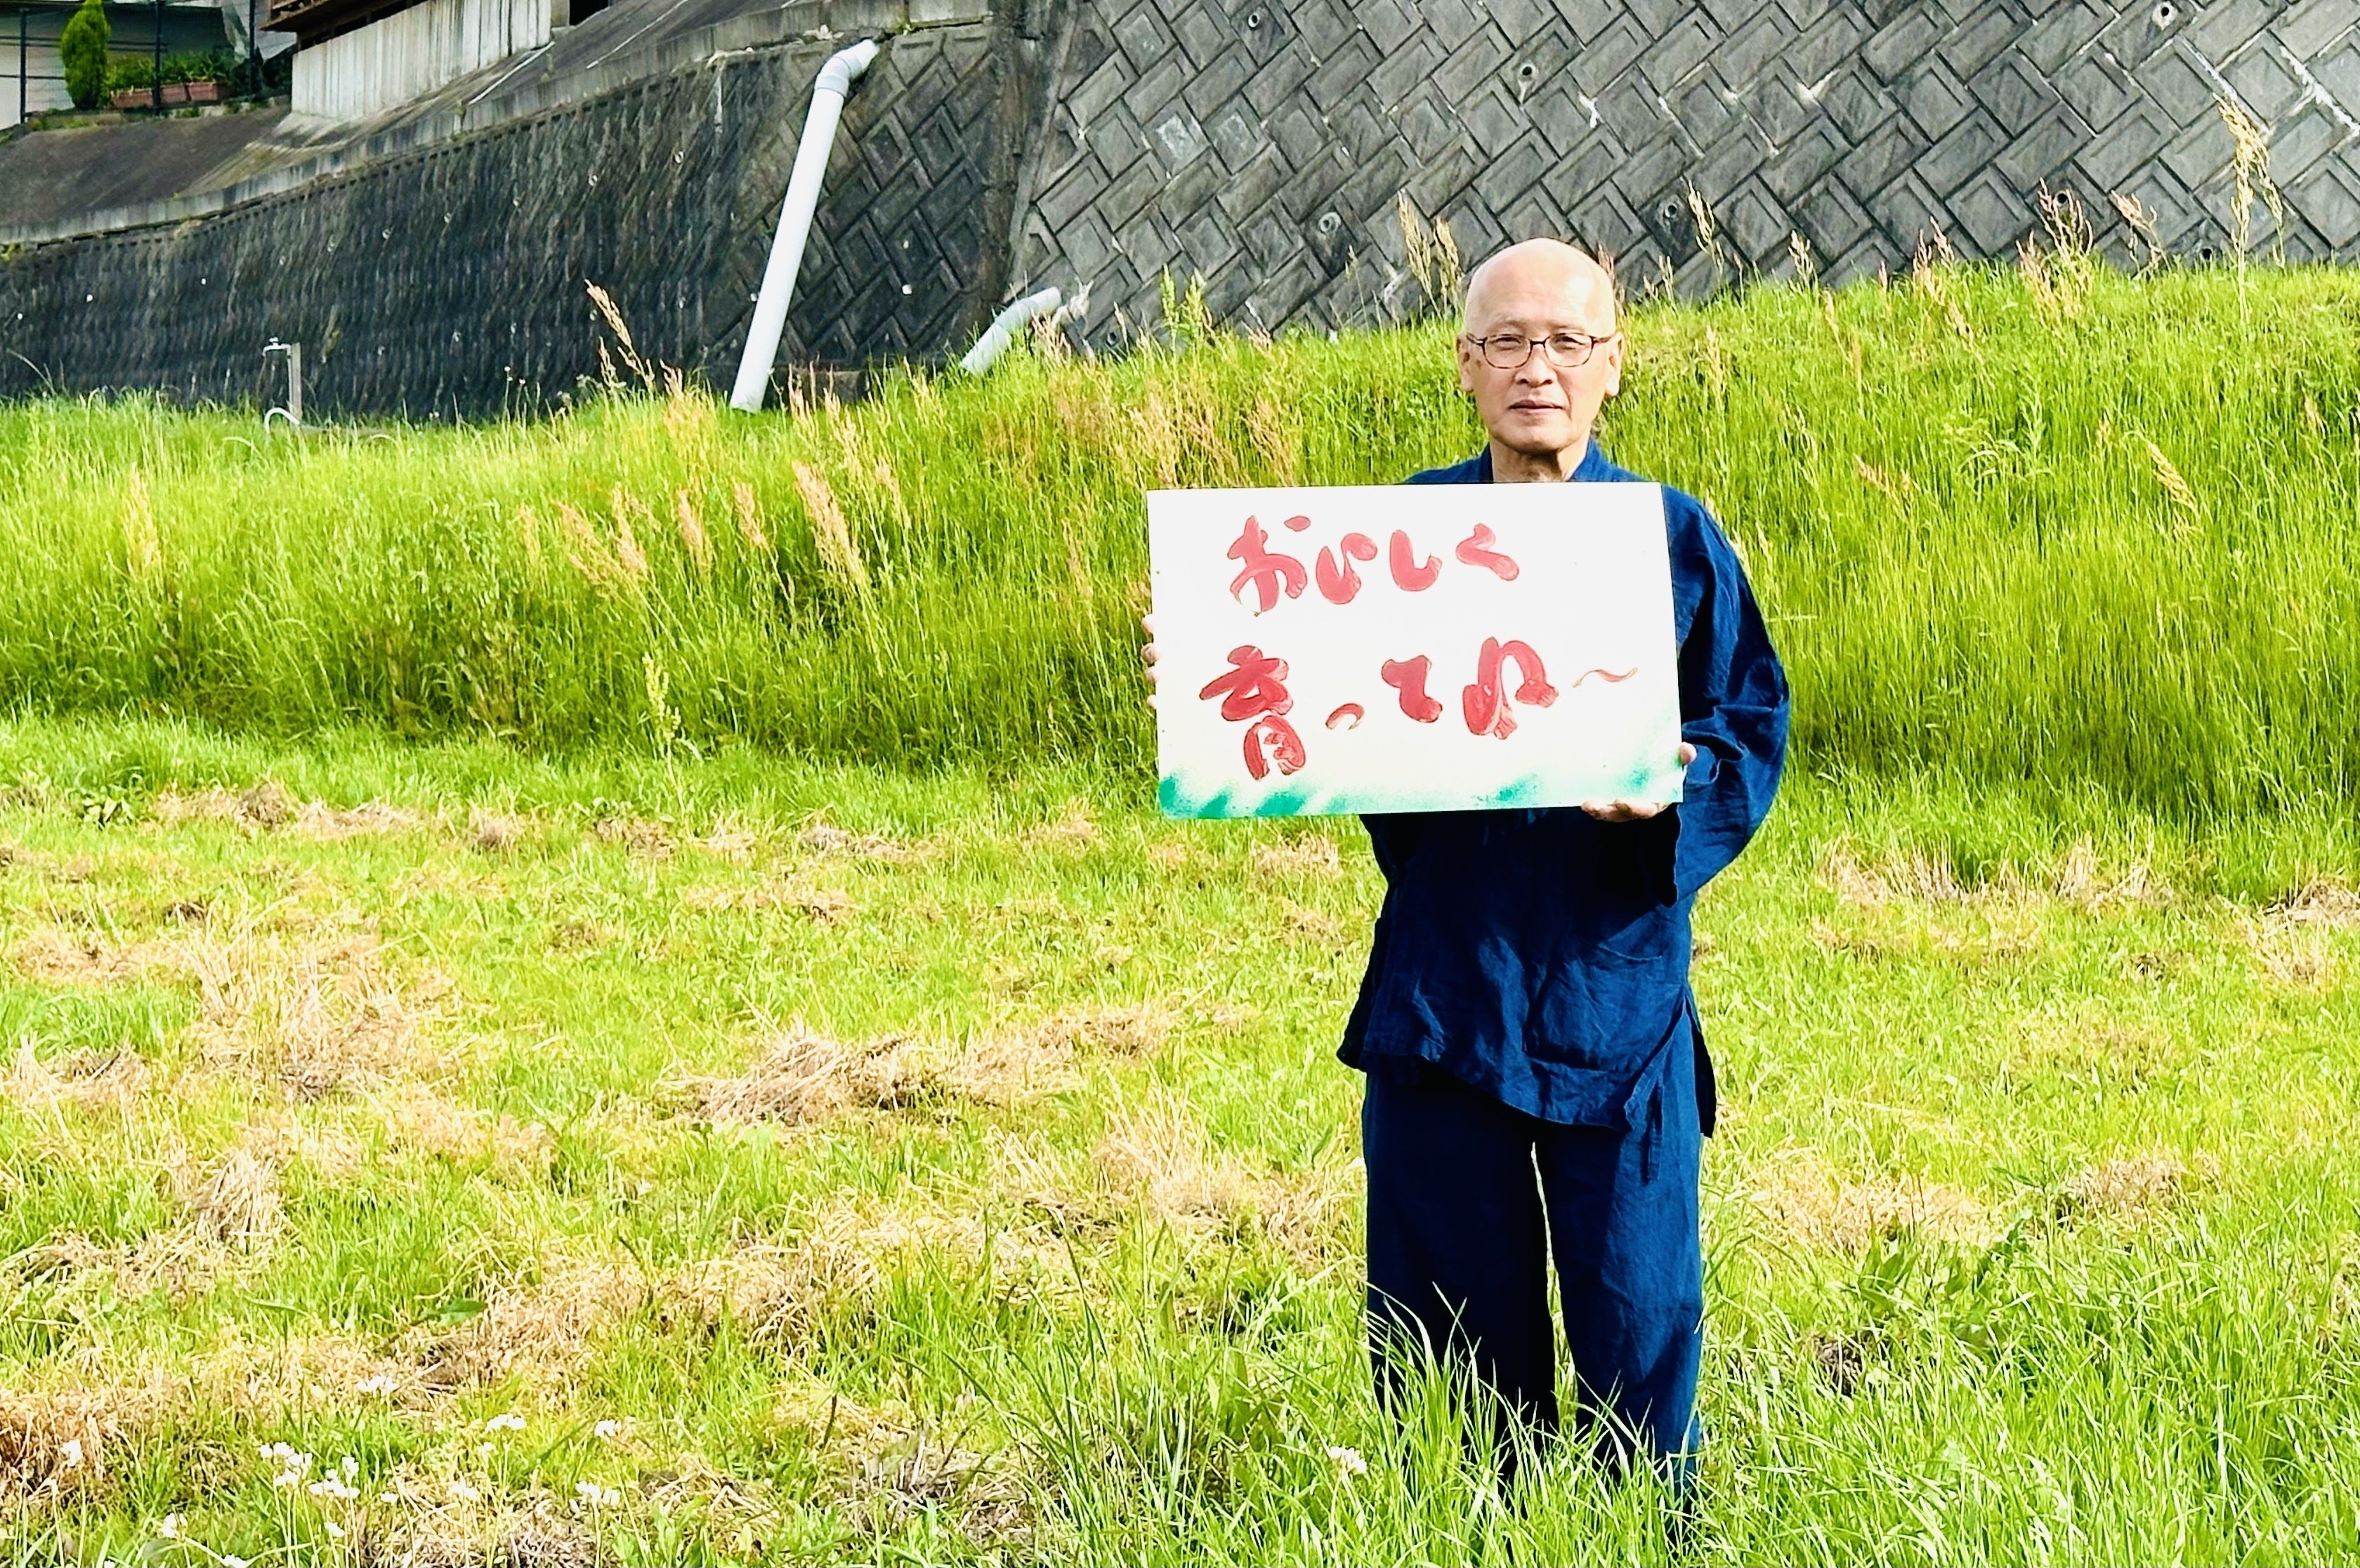 おいしく
育ってね～